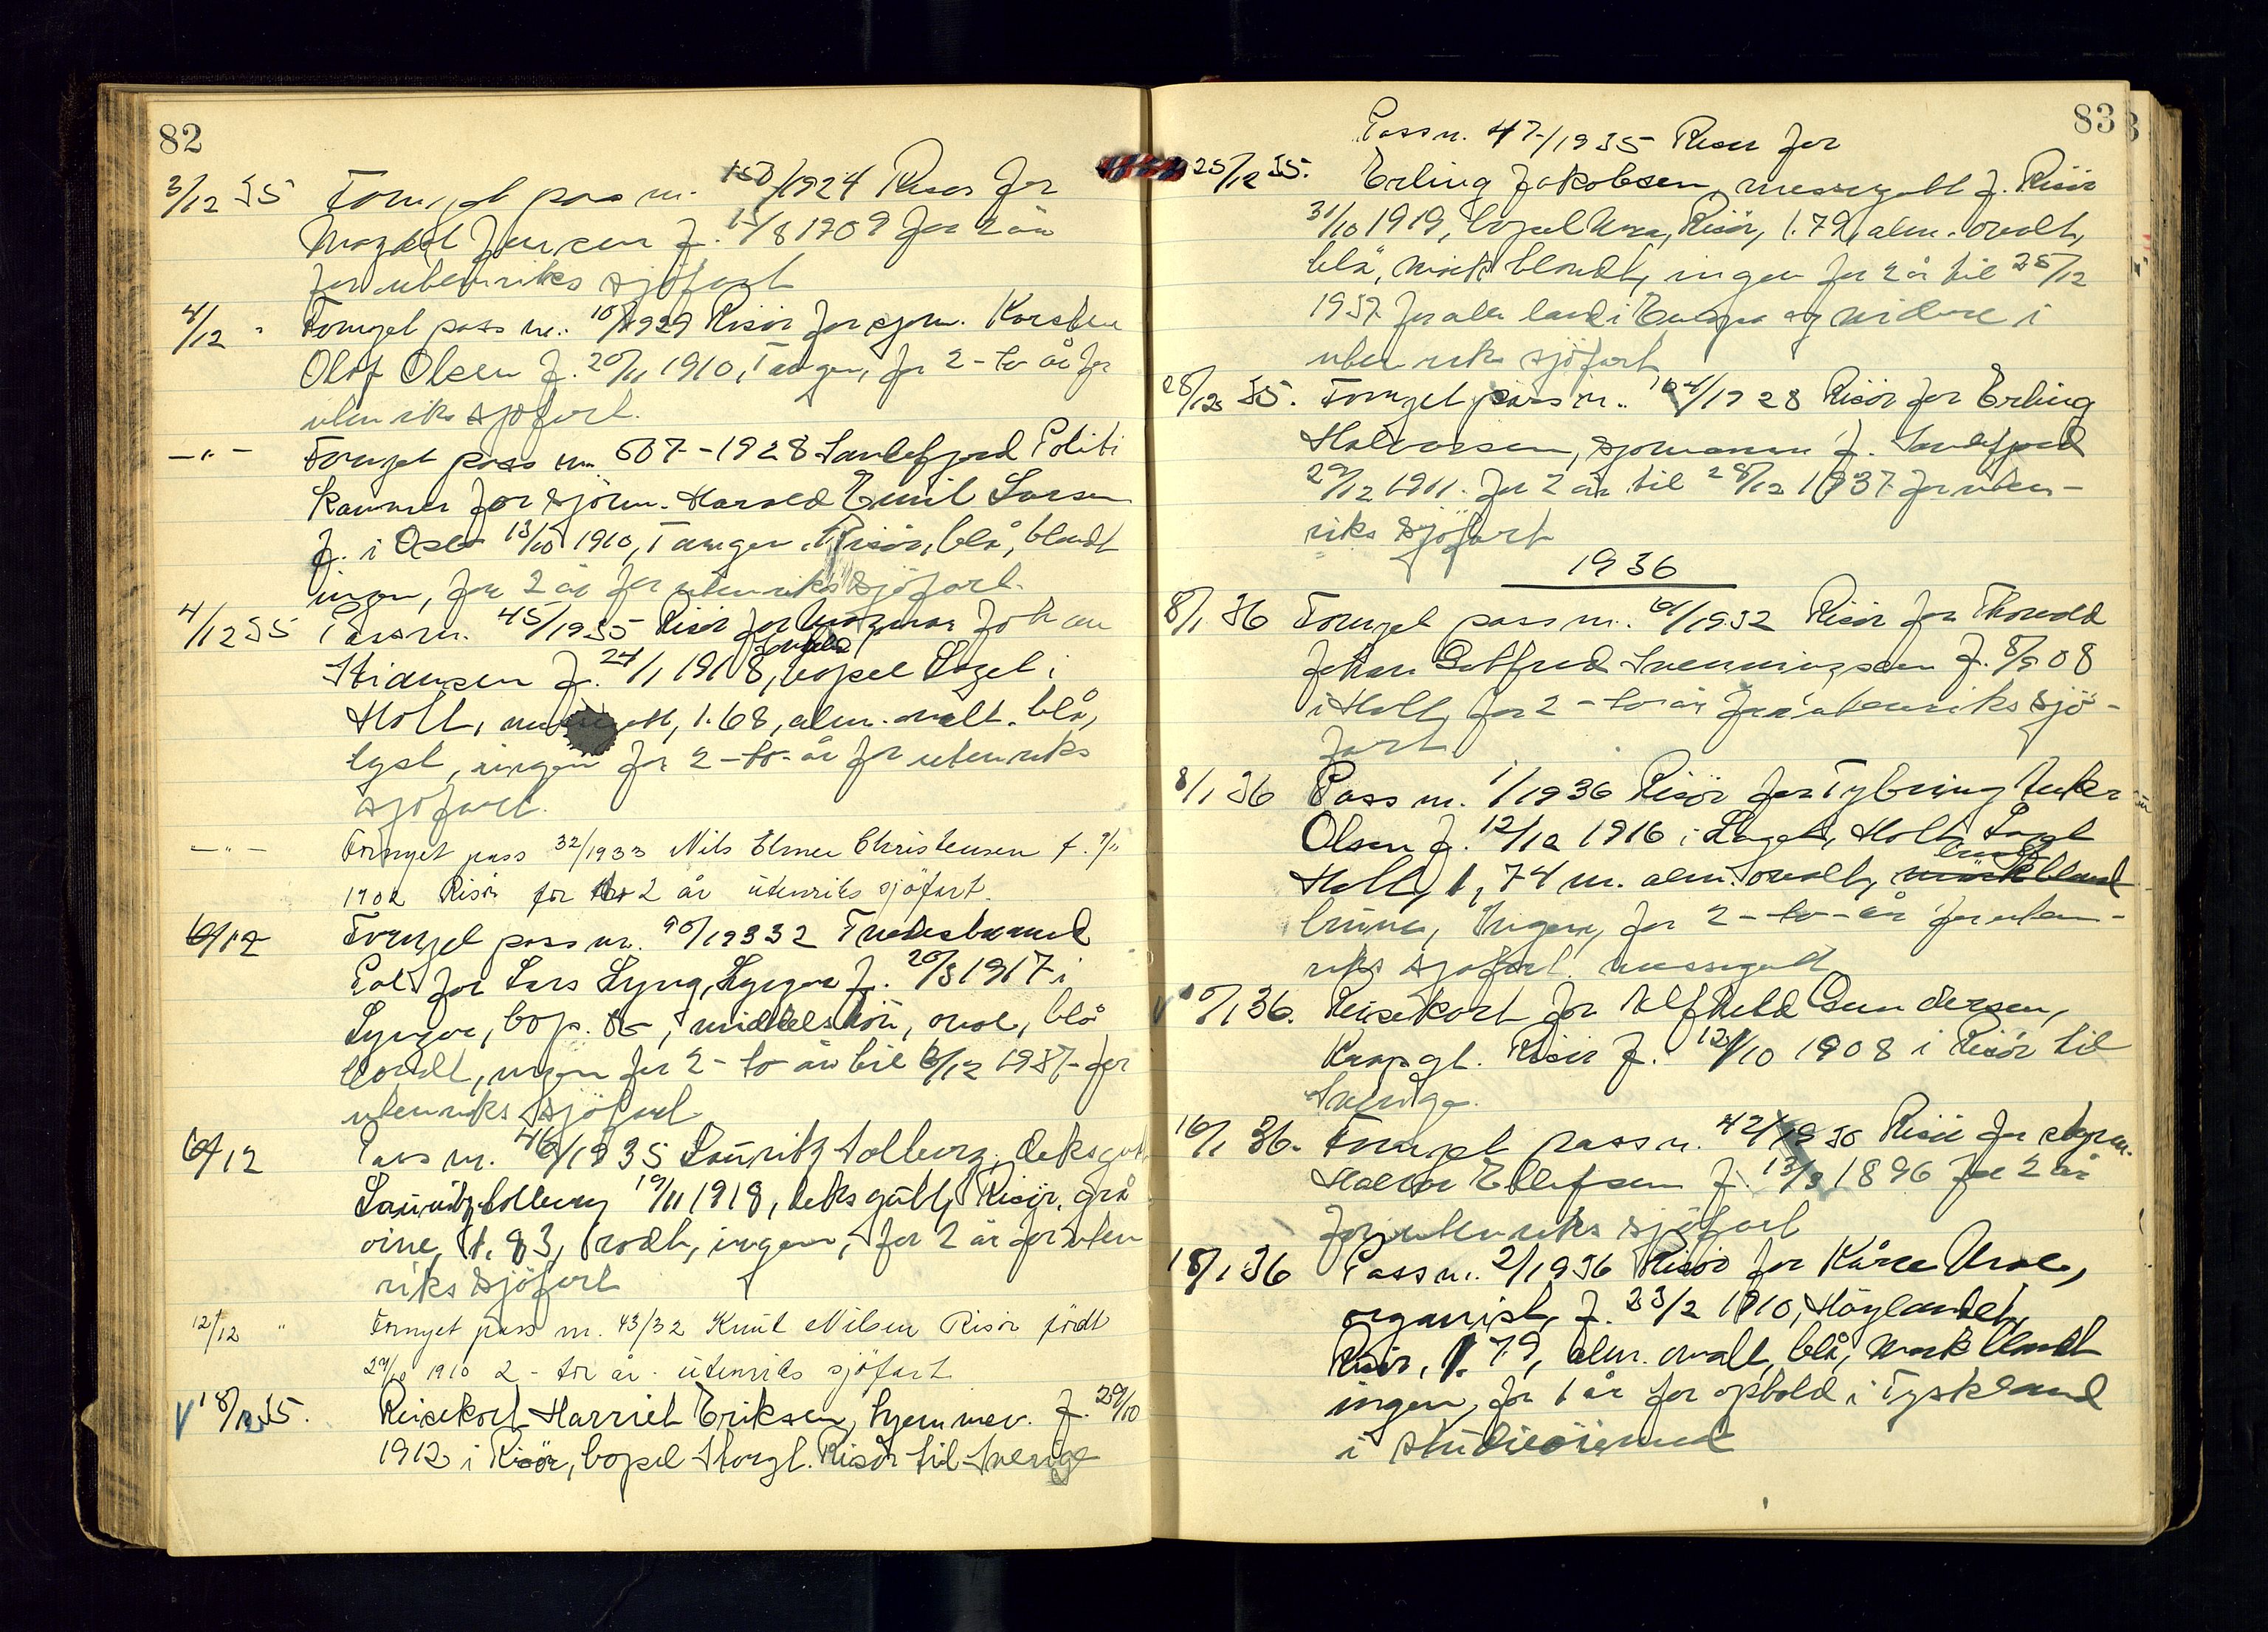 82
3/12 35 Fornyet pass nr. 150/1924 Risør for
Jensen f. 15/8 1909 for 2 år
for utenriks sjöfart
4/12 " Fornyet pass nr. 10/1929 Risör for sjøm. Karsten
Olaf Olsen f. 20/11 1910, Tangen, for 2 - to år for
utenriks sjøfart.
— " — Fornyet pass nr. 507 - 1928 Sandefjord Politi
kammer for sjöm. Harald Emil Larsen
f. i Oslo 13/10 1910, Tangen, Risör, blå, blondt
ingen, for 2 år for utenriks sjøfart.
4/12 35 Pass nr. 45/1935 Risör for Johan
Stiansen f. 24/1 1918, bopel Laget i
Holt, 1.68, alm. ovalt. blå,
lyst, ingen for 2 - to - år for utenriks
sjöfart.
— " — Fornyet pass 32/1933 Nils Elmer Christensen f. 9/11
1902 Risör for 2 år utenriks sjöfart.
6/12 Fornyet pass nr. 90/19332 Tvedestrand
Pol for Lars Lyng, Lyngør f. 20/3 1917 i
Lyngør, bop. middelshöi, oval, blå
blondt, ingen for 2 - to år til 6/12 1937 - for
utenriks sjöfart
6/12 Pass nr. 46/1935 Lauritz Solberg, deksgut
Lauritz Solberg 19/11 1918, deksgutt, Risör, grå
öine, 1.83, rödt, ingen, for 2 år for uten
riks sjöfart
12/12 " Fornyet pass nr. 43/32 Knut Nilsen Risör födt
1910 2 - to år - utenriks sjöfart
V 18/12 35. Reisekort Harriet Eriksen, hjemmev. f. 29/10
1912 i Risör, bopel Storgt. Risör til Sverige
83
Pass nr. 47/1935 Risør for
25/12 35. Erling Jakobsen, messegutt f. Risör
31/10 1919, bopel Risör, 1.79, alm. ovalt,
blå, mörk blondt, ingen for 2 år til 28/12
1937 for alle land i Europa og videre i
utenriks sjöfart
28/12 35. Fornyet pass nr. 1928 Risör for Erling
Halvorsen, sjømann f. Sandefjord
29/12 1911. for 2 år til 28/12 1937 for uten-
riks sjöfart
1936
8/1 36 Fornyet pass nr. 1932 Risör for Thorvald
Johan Gotfred Svenningsen f. 8/5 08
i Holt, for 2 - to år for utenriks sjö-
fart
8/1 36 Pass nr. 1/1936 Risör for Tybring
Olsen f. 12/12 1916 i Laget, Holt, Laget
Holt, 1,74 m. alm. ovalt, mörkblond
brune, Ingen, for 2 - to - år for uten-
riks sjøfart. messegutt
V 10/1 36. Reisekort for Alfhild Gundersen,
Kragsgt. Risör f. 12/10 1908 i Risör til
Sverige.
16/1 36. Fornyet pass nr. 42/1930 Risör for styrm.
Halvor Ellefsen f. 13/3 1896 for 2 år
for utenriks sjöfart
18/1 36 Pass nr. 2/1936 Risör for Kåre
organist, f. 23/2 1910, Höylandet,
Risör, 1.79, alm. ovalt, blå, mörk blondt
ingen, for 1 år for ophold i Tyskland
i studieöiemed